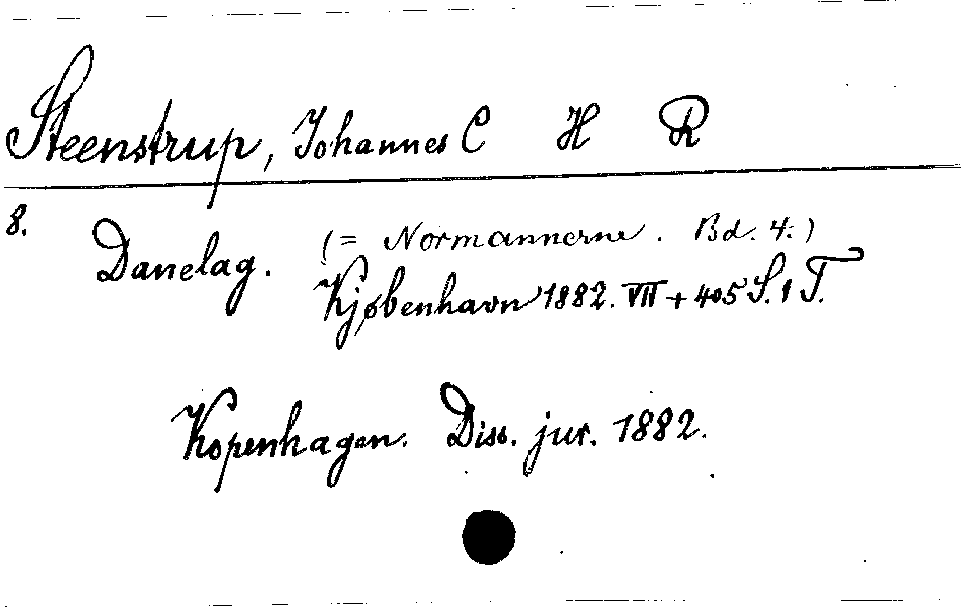 Steenstrup, Johannes C H R
8.
Danelag. (= Normannerne. Bd. 4.)
Kjøbenhavn 1882. VII + 405 S. 1 T.
Kopenhagen. Diss. jur. 1882.